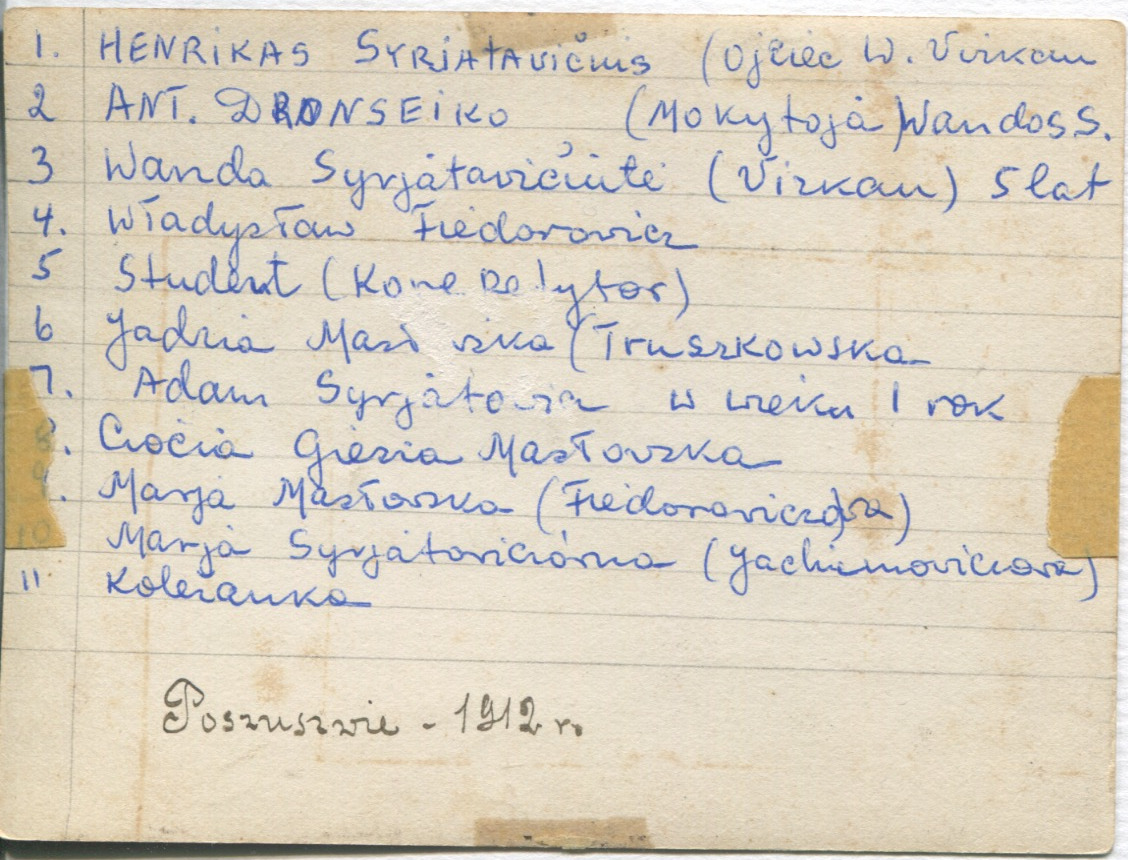 1. HENRIKAS SYRJATAVIČIUS (Ojciec W. Virkau
2 ANT. DRONSEIKO (Mokytoja) Wandos S.
3 Wanda Syrjatavičiutė (Virkau) 5 lat
4. Władysław Fiedorowicz
5 Student (Kore petytor)
6 Jadzia Masł wska (Truszkowska
7. Adam Syrjatowicz w wieku 1 rok
8. Ciocia Giezia Masłovska
9. Marja Masłovska (Fiedoroviczowa)
10 Marja Syrjatoviciówna (Jachimoviciova)
11 Koleżanka
Poszuszwie - 1912 r.